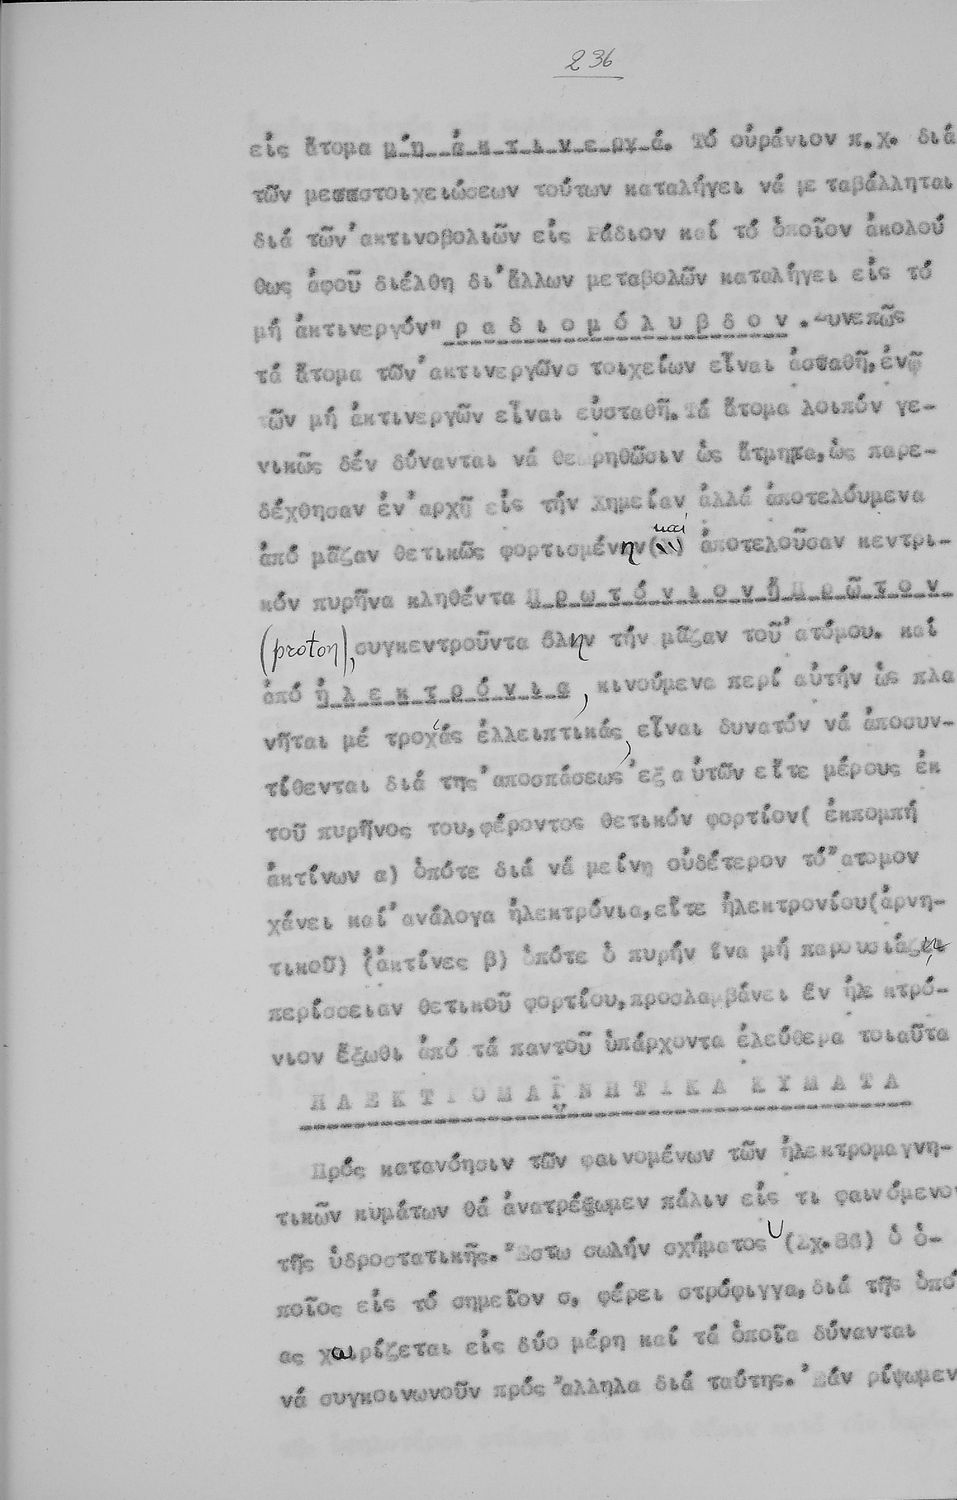 236
εἰς ἄτομα μ ή   ἀ κ τ ι ν ε ρ γ ά. Τό οὐράνιον π.χ. διά
τῶν μεταστοιχειώσεων τούτων καταλήγει νά με ταβάλληται
διά τῶν ἀκτινοβολιῶν εἰς Ράδιον καί τό ὁποῖον ἀκολού
θως ἀφοῦ διέλθη δι'ἄλλων μεταβολῶν καταλήγει εἰς τό
μή ἀκτινεργόν" ρ α δ ι ο μ ό λ υ β δ ο ν . Συνεπῶς
τά ἄτομα τῶν ἀκτινεργῶνσ τοιχείων εἶναι ἀσταθῆ,ἐνῷ
τῶν μή ἀκτινεργῶν εἶναι εὐσταθῆ.Τά ἄτομα λοιπόν γε-
νικῶς δέν δύνανται νά θεωρηθῶσιν ὡς ἄτμητα,ὡς παρε-
δέχθησαν ἐν ἀρχῇ εἰς τήν Χημείαν ἀλλά ἀποτελούμενα
καί
ἀπό μᾶζαν θετικῶς φορτισμένην ἀποτελοῦσαν κεντρι-
κόν πυρῆνα κληθέντα Π ρ ω τ ό ν ι ο ν ἤ Π ρ ῶ τ ο ν
(proton), συγκεντροῦντα ὅλην τήν μᾶζαν τοῦ ἀτόμου. καί
ἀπό ἠ λ ε κ τ ρ ό ν ι α , κινούμενα περί αὐτήν ὡς πλα
νῆται μέ τροχιάς ἐλλειπτικάς, εἶναι δυνατόν νά ἀποσυν-
τίθενται διά της ἀποσπάσεως ἐξ α ὐτῶν εἴτε μέρους ἐκ
τοῦ πυρῆνος του,φέροντος θετικόν φορτίον( ἐκπομπή
ἀκτίνων α) ὁπότε διά νά με ίνη οὐδέτερον τό ἄτομον
χάνει καί ἀνάλογα ἠλεκτρόνια,εἴτε ἠλεκτρονίου(ἀρνη-
τικοῦ) (ἀκτίνες β) ὁπότε ὁ πυρήν ἵνα μή παρουσιάζῃ
περίσσειαν θετικοῦ φορτίου,προσλαμβάνει ἕν ἠλε κτρό-
νιον ἔξωθι ἀπό τά παντοῦ ὑπάρχοντα ἐλεύθερα τοιαῦτα
Η Λ Ε Κ Τ Ρ Ο Μ Α Γ Ν Η Τ Ι Κ Α   Κ Υ Μ Α Τ Α
Πρός κατανόησιν τῶν φαινομένων τῶν ἠλεκτρομαγνη-
τικῶν κυμάτων θά ἀνατρέξωμεν πάλιν εἰς τι φαινόμενον
τῆς ὑδροστατικῆς. Ἔστω σωλήν σχήματος U (Σχ.86) ὁ ὁ-
ποῖος εἰς τό σημεῖον σ, φέρει στρόφιγγα,διά τῆς ὁπο
ας χωρίζεται εἰς δύο μέρη καί τά ὁποῖα δύνανται
νά συγκοινωνοῦν πρός ἄλληλα διά ταύτης. Ἐάν ρίψωμεν